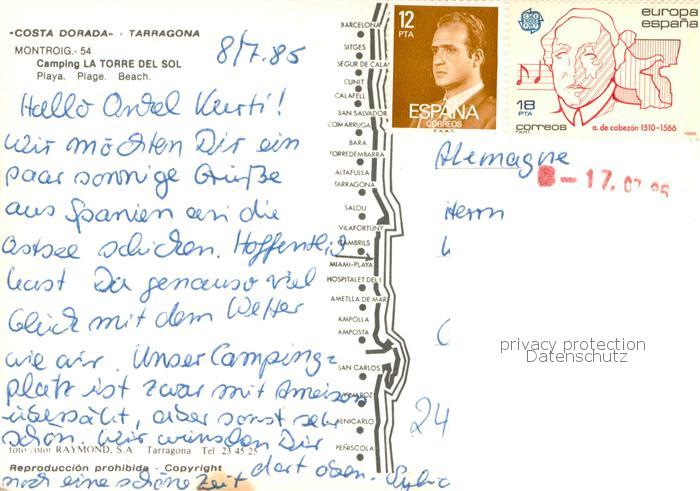 "COSTA DORADA" - TARRAGONA
MONTROIG.- 54
Camping LA TORRE DEL SOL
Playa. Plage. Beach.
8/7.85
Hallo Onkel Kurti!
Wir möchten Dir ein
paar sonnige Grüße
aus Spanien an die
Ostsee schicken. Hoffentlich
hast Du genauso viel
Glück mit dem Wetter
wie wir. Unser Camping=
platz ist zwar mit Ameisen
übersäht, aber sonst sehr
schön. Wir wünschen Dir
noch eine schöne Zeit dort oben.
foto color RAYMOND, S.A Tarragona Tel 23 45 25
Reproducción prohibida - Copyright
BARCELONA
SITGES
SEGUR DE CALAF
CUNIT
CALAFELL
SAN SALVADOR
COMARRUGA
BARA
TORREDEMBARRA
ALTAFULLA
TARRAGONA
SALOU
VILAFORTUNY
CAMBRILS
MIAMI-PLAYA
HOSPITALET DEL I
AMETLLA DE MAR
AMPOLLA
AMPOSTA
SAN CARLOS
VINAROZ
BENICARLO
PEÑISCOLA
12
PTA
ESPAÑA
CORREOS
F.N.M.T.
europa
españa
18
PTA
correos
F.N.M.T.
a. de cabezón 1510-1566
1985
Alemagne
8-17.07.85
Herrn
24
privacy protection
Datenschutz